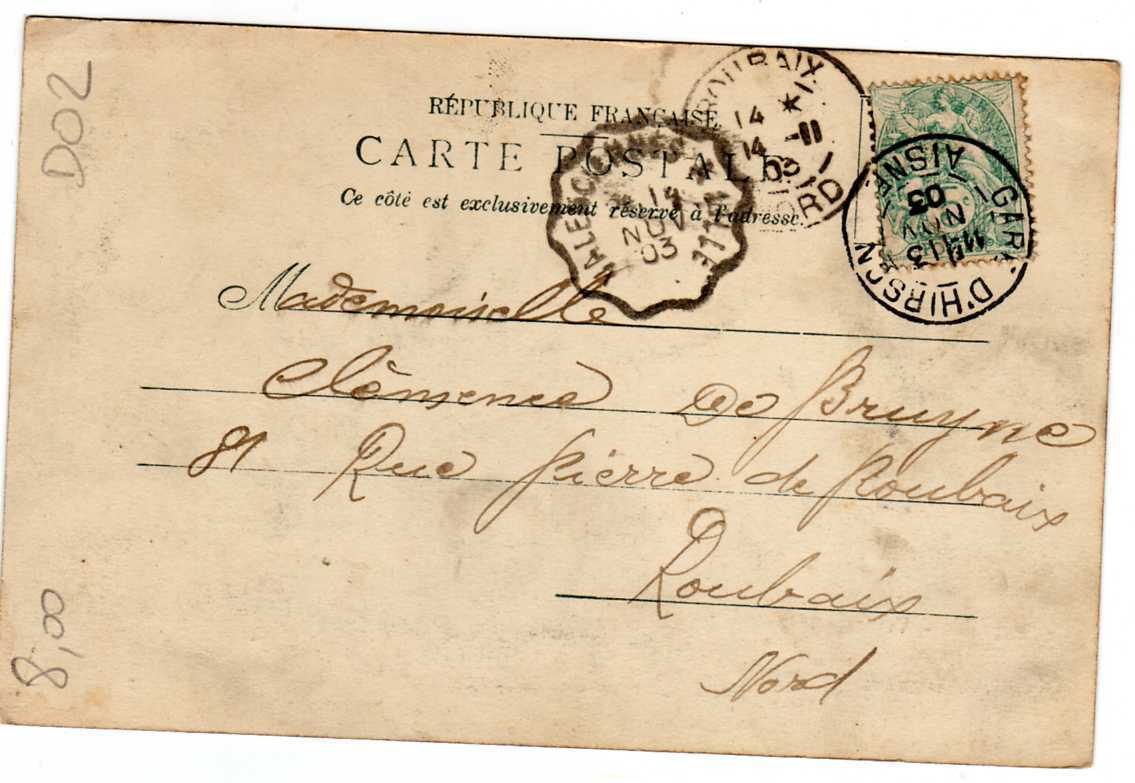 D02
RÉPUBLIQUE FRANÇAISE
CARTE POSTALE
Ce côté est exclusivement réservé à l'adresse.
ROUBAIX
14 * 11
14 -11
03
NORD
VALENCIENNES A LILLE
14
NOV
03
GARE D'HIRSON
13
NOV
03
AISNE
Mademoiselle
Clèmence De Bruyne
81 Rue Pierre de Roubaix
Roubaix
Nord
8,00